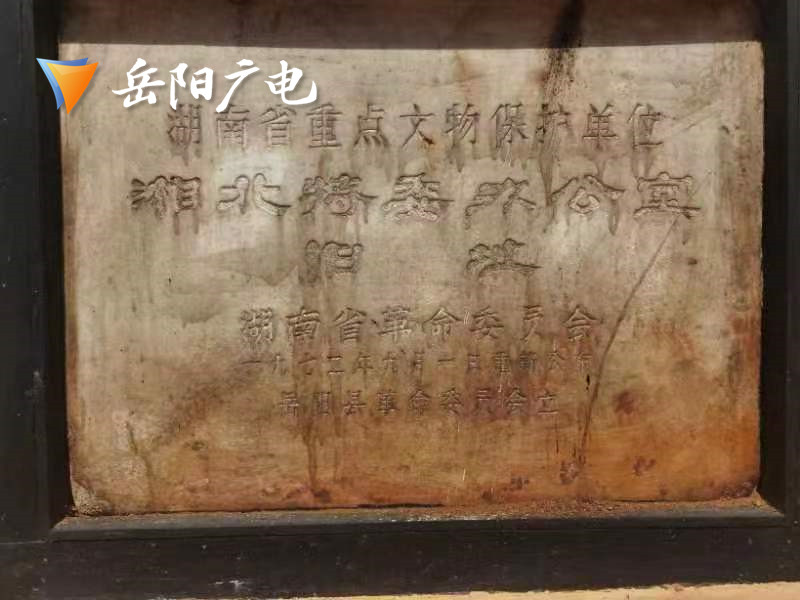 岳阳广电
湖南省重点文物保护单位
湘北特委办公室
旧址
湖南省革命委员会
一九七二年九月一日重新公布
岳阳县革命委员会立